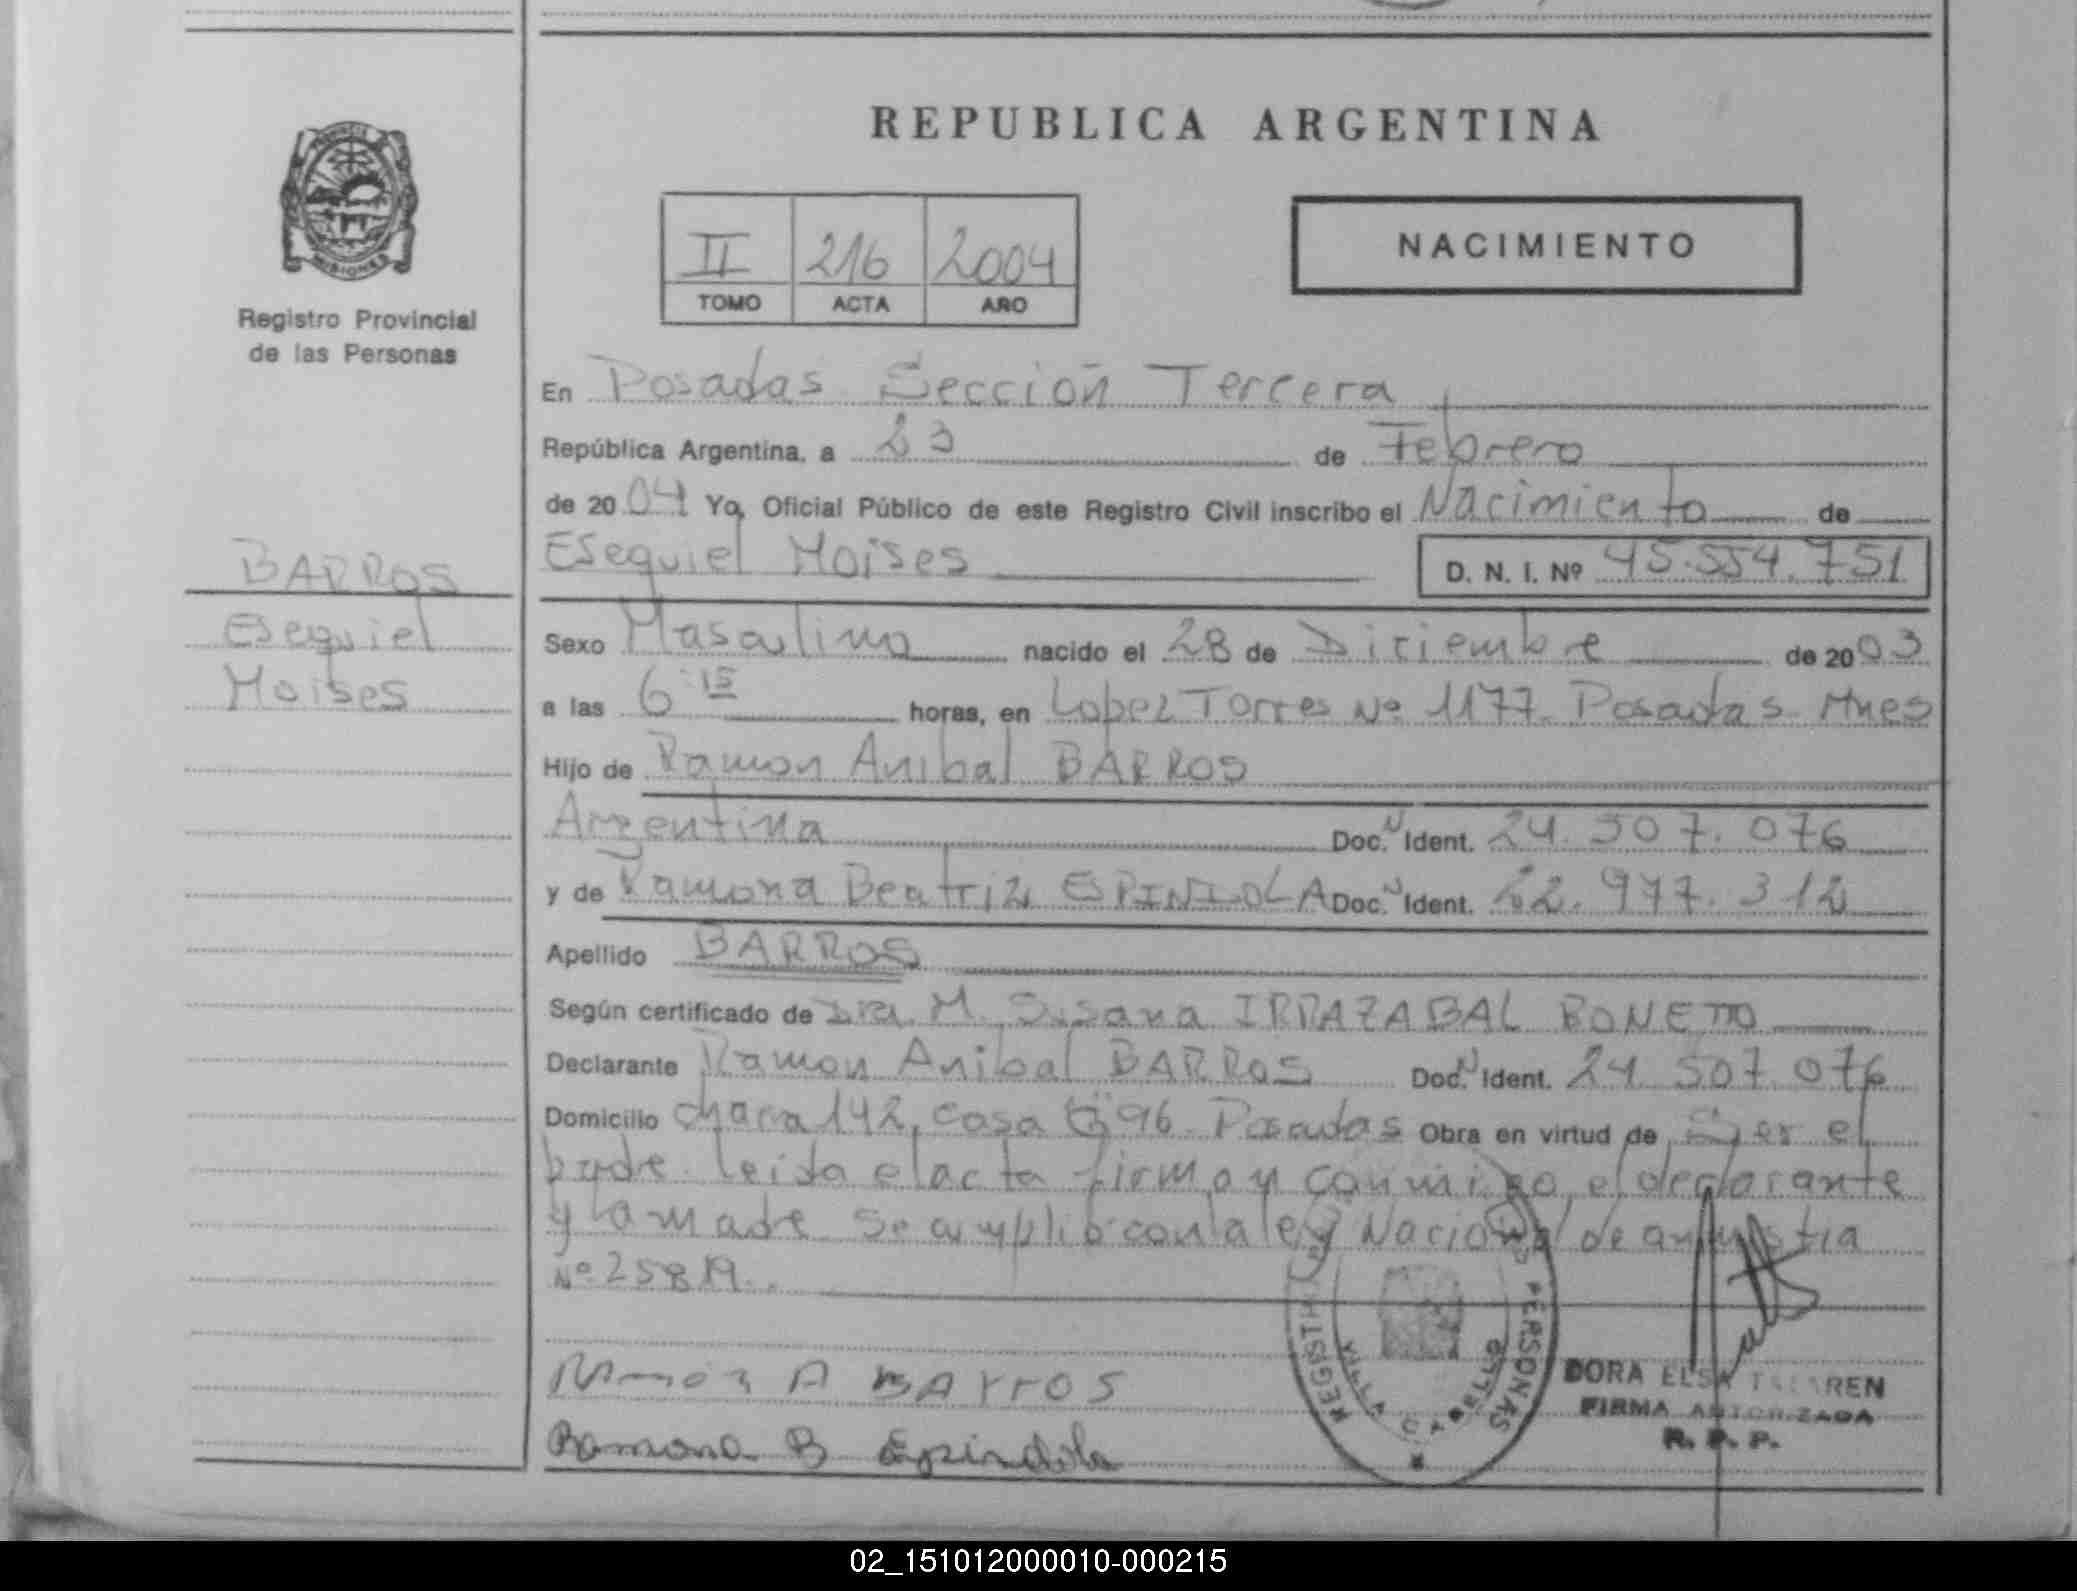 REPUBLICA ARGENTINA
PROVINCIA MISIONES
Registro Provincial
de las Personas
II 216 2004
TOMO ACTA AÑO
NACIMIENTO
En Posadas Sección Tercera
República Argentina, a 23 de Febrero
de 2004 Yo, Oficial Público de este Registro Civil inscribo el Nacimiento de
Esequiel Moises D. N. I. Nº 45.554.751
BARROS
Esequiel
Moises
Sexo Masculino nacido el 28 de Diciembre de 2003
a las 6:15 horas, en Lopez Torres Nº 1177 Posadas Mnes
Hijo de Ramon Anibal BARROS
Argentina Doc. N Ident. 24.507.076
y de Ramona Beatriz ESPINDOLA Doc. N Ident. 22.977.312
Apellido BARROS
Según certificado de Dra. M. Susana IRRAZABAL BONETTO
Declarante Ramon Anibal BARROS Doc. N Ident. 24.507.076
Domicilio chacra 142, casa 96 Posadas Obra en virtud de Ser el
padre. leida el acta firman conmigo el declarante
y la madre se amplio con la ley Nacional de amnistia
Nº 25819.
Ramón A BARROS
Ramona B Espindola
REGISTRO PERSONAS
VILLA CABELLO
DORA ELSA
FIRMA AUTORIZADA
R. P. P.
02_151012000010-000215